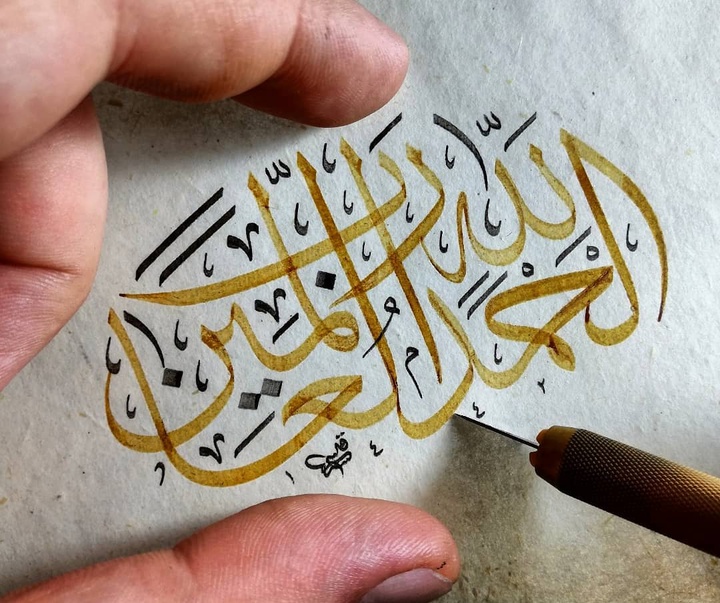 الْحَمْدُ لِلَّهِ رَبِّ الْعَالَمِينَ
١٤٤٢